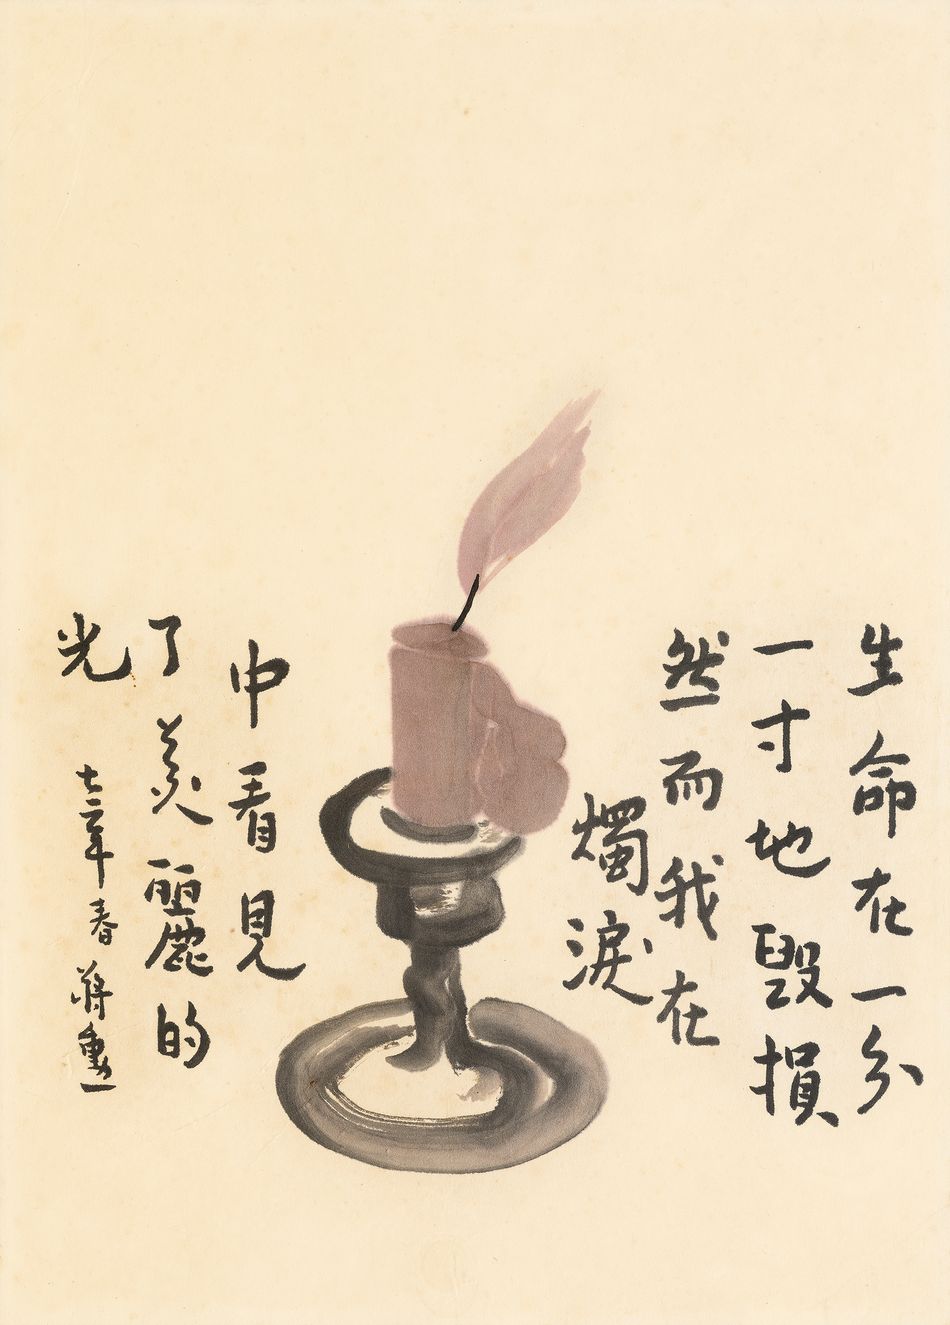 生命在一分
一寸地毀損
然而我在
燭淚
中看見
了美麗的
光
七二年春 蔣勳